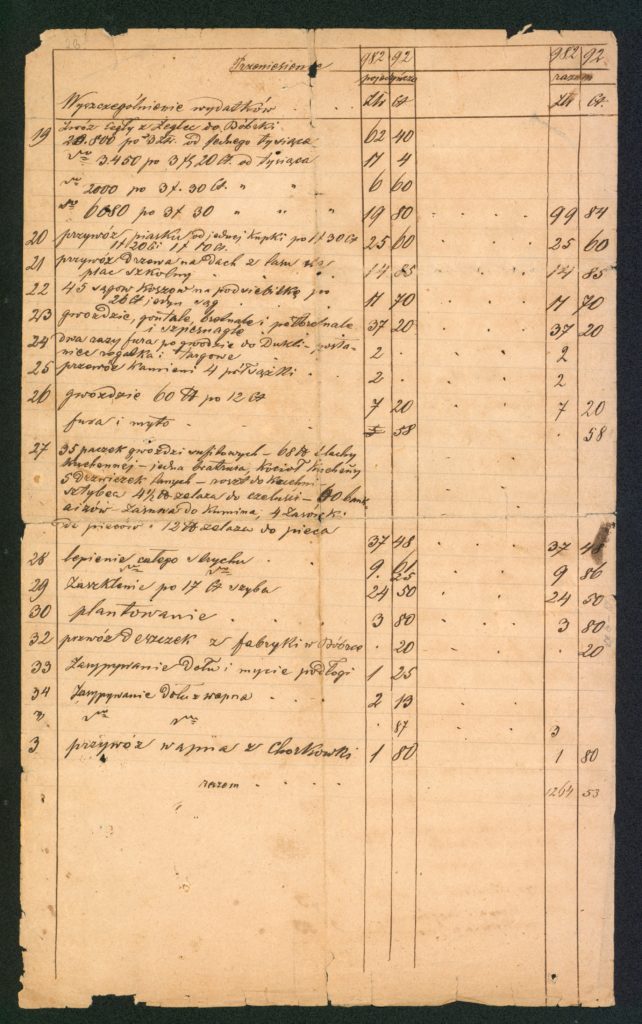 Przeniesienie 982 92 982 92
pojedyńczo razem
Wyszczególnienie wydatków . . . Zł Ct Zł Ct
19 Zwóz Cegły z Żeglec do Bóbrki
po 3 Zł. od jednego tysiąca 62 40
dto 3.450 po 3 zł 20 Ct od tysiąca 17 4
dto 2000 po 3 zł. 30 Ct. " " 6 60
dto 6080 po 3 zł 30 " " " 19 80 99 84
20 przywóz piasku od jednej kupki po 1 zł 30 Ct
1 zł 20 Ct i 1 zł 10 Ct. 25 60 25 60
21 przywóz Drzewa na Dach z lasu na
plac szkolny 14 85 14 85
22 45 sągów po
26 Ct jeden sąg 17 70 17 70
23 gwoździe, gontale, bratnale i półbratnale
i szpernagle 37 20 37 20
24 dwa razy fura po gwoździe do Dukli
i targowe 2 . 2
25 przewóz Kamieni 4 2 . 2
26 gwoździe 60 ℔ po 12 Ct 7 20 7 20
fura i myto . . 58 58
27 35 paczek gwoździ sufitowych - 68 ℔ blachy
Kuchennej - jedna bratrura, Kocioł Kuchenny
5 Drzwiczek lanych - roszt do Kuchni
sztybca 4½ ℔ żelaza do czeluści -
do Kumina, 4
do pieców . 12 ℔ żelaza do pieca 37 48 37 48
28 lepienie całego strychu . 9 61
dto dto 25 9 86
29 Zaszklenie po 17 Ct szyba 24 50 24 50
30 plantowanie . 3 80 3 80
32 przewóz Deszczek z fabryki w Bóbrce . 20 . 20
33 Zasypywanie Dołu i mycie podłogi 1 25
34 Zasypywanie Dołu z wapna . . 2 13
" dto dto . 87 3
3 przywóz wapna z Chorkówki 1 80 1 80
razem . . . . 1264 53